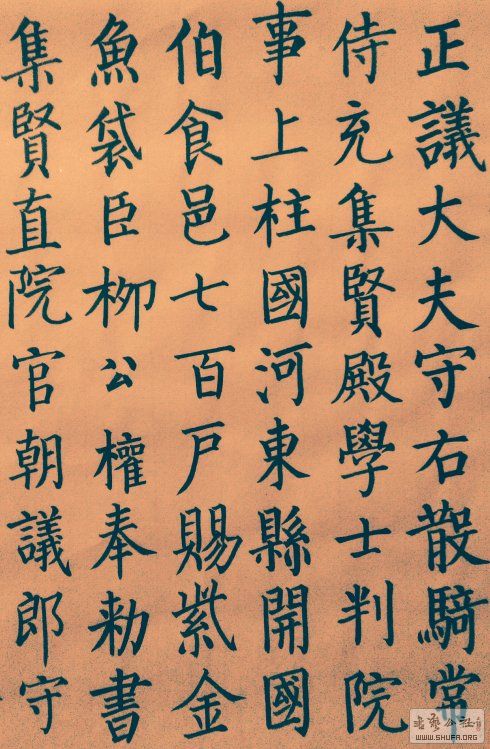 正議大夫守右散騎常
侍充集賢殿學士判院
事上柱國河東縣開國
伯食邑七百戶賜紫金
魚袋臣柳公權奉勑書
集賢直院官朝議郎守
WWW.SHUFA.ORG